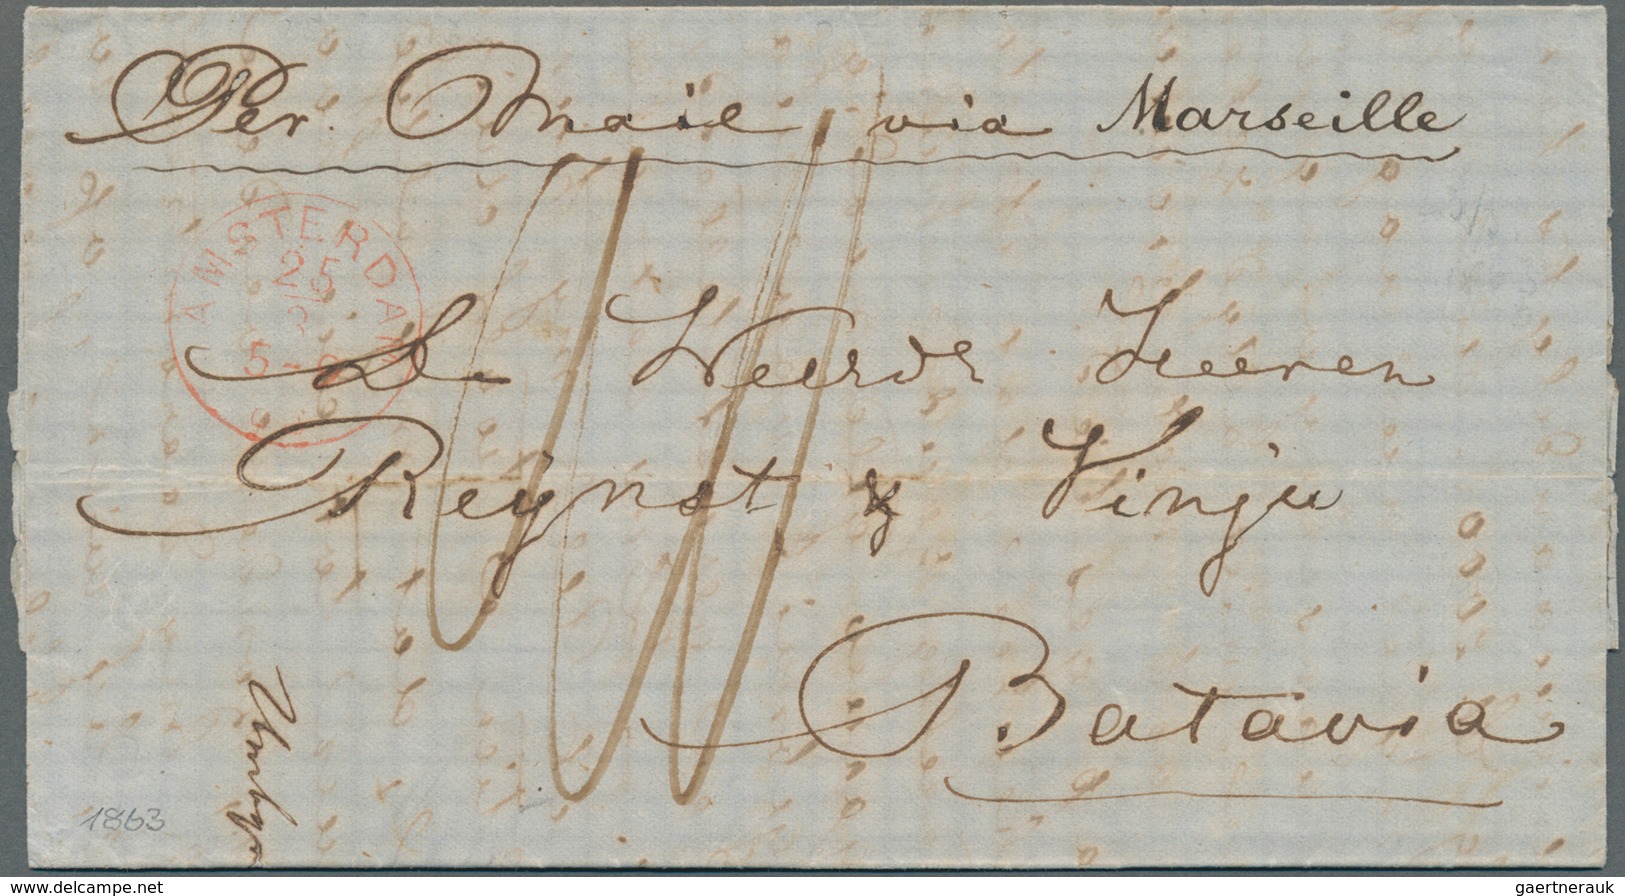 Per Mail via Marseille
AMSTERDAM
25
5-
De Weerde Heeren
Reijnst & Vinju
Batavia
1863
www.delcampe.net
gaertnerauk